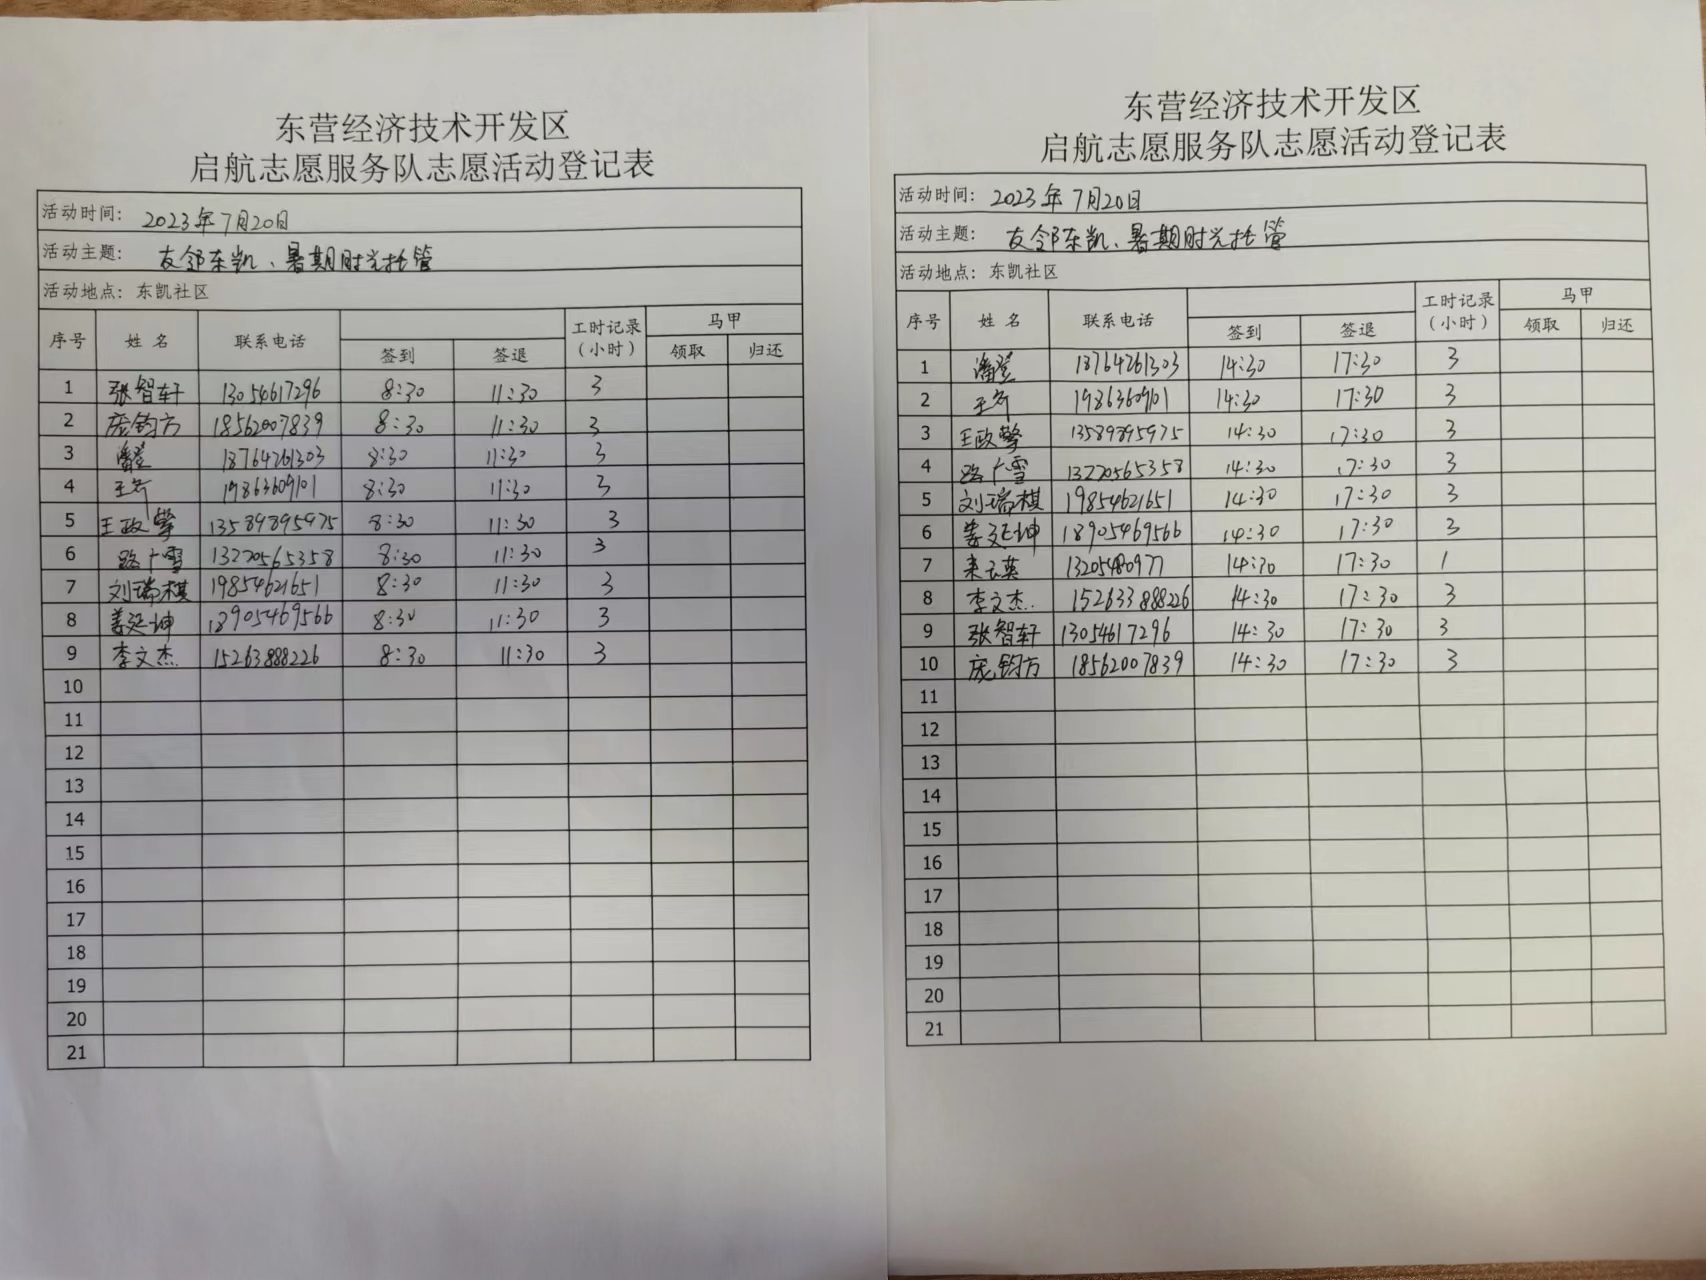 东营经济技术开发区
启航志愿服务队志愿活动登记表
活动时间： 2023年7月20日
活动主题： 友邻东凯、暑期时光托管
活动地点：东凯社区
序号 姓名 联系电话 签到 签退 工时记录（小时） 马甲 领取 归还
1 张智轩 13054617296 8:30 11:30 3
2 庞钧方 18562007839 8:30 11:30 3
3 潘登 18764261303 8:30 11:30 3
4 王齐 19863609101 8:30 11:30 3
5 王政擎 13589895975 8:30 11:30 3
6 路广雪 13220565358 8:30 11:30 3
7 刘瑞棋 19854621651 8:30 11:30 3
8 姜延坤 18905469566 8:30 11:30 3
9 李文杰 15263888226 8:30 11:30 3
10
11
12
13
14
15
16
17
18
19
20
21
东营经济技术开发区
启航志愿服务队志愿活动登记表
活动时间： 2023年7月20日
活动主题： 友邻东凯、暑期时光托管
活动地点：东凯社区
序号 姓名 联系电话 签到 签退 工时记录（小时） 马甲 领取 归还
1 潘登 18764261303 14:30 17:30 3
2 王齐 19863609101 14:30 17:30 3
3 王政擎 13589895975 14:30 17:30 3
4 路广雪 13220565358 14:30 17:30 3
5 刘瑞棋 19854621651 14:30 17:30 3
6 姜延坤 18905469566 14:30 17:30 3
7 来云英 13205480977 14:30 17:30 1
8 李文杰 152633888226 14:30 17:30 3
9 张智轩 13054617296 14:30 17:30 3
10 庞钧方 18562007839 14:30 17:30 3
11
12
13
14
15
16
17
18
19
20
21